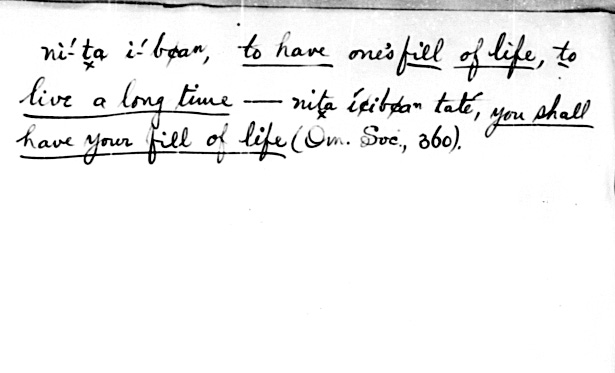 ni´ṭa i´b¢aⁿ, to have one's fill of life, to
live a long time — niṭa í¢ib¢aⁿ taté, you shall
have your fill of life (Om. Soc., 360).